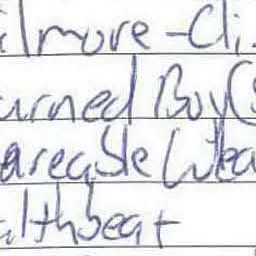 ilmore-Cli
urned Boy(s
areable (Wea
althbeat